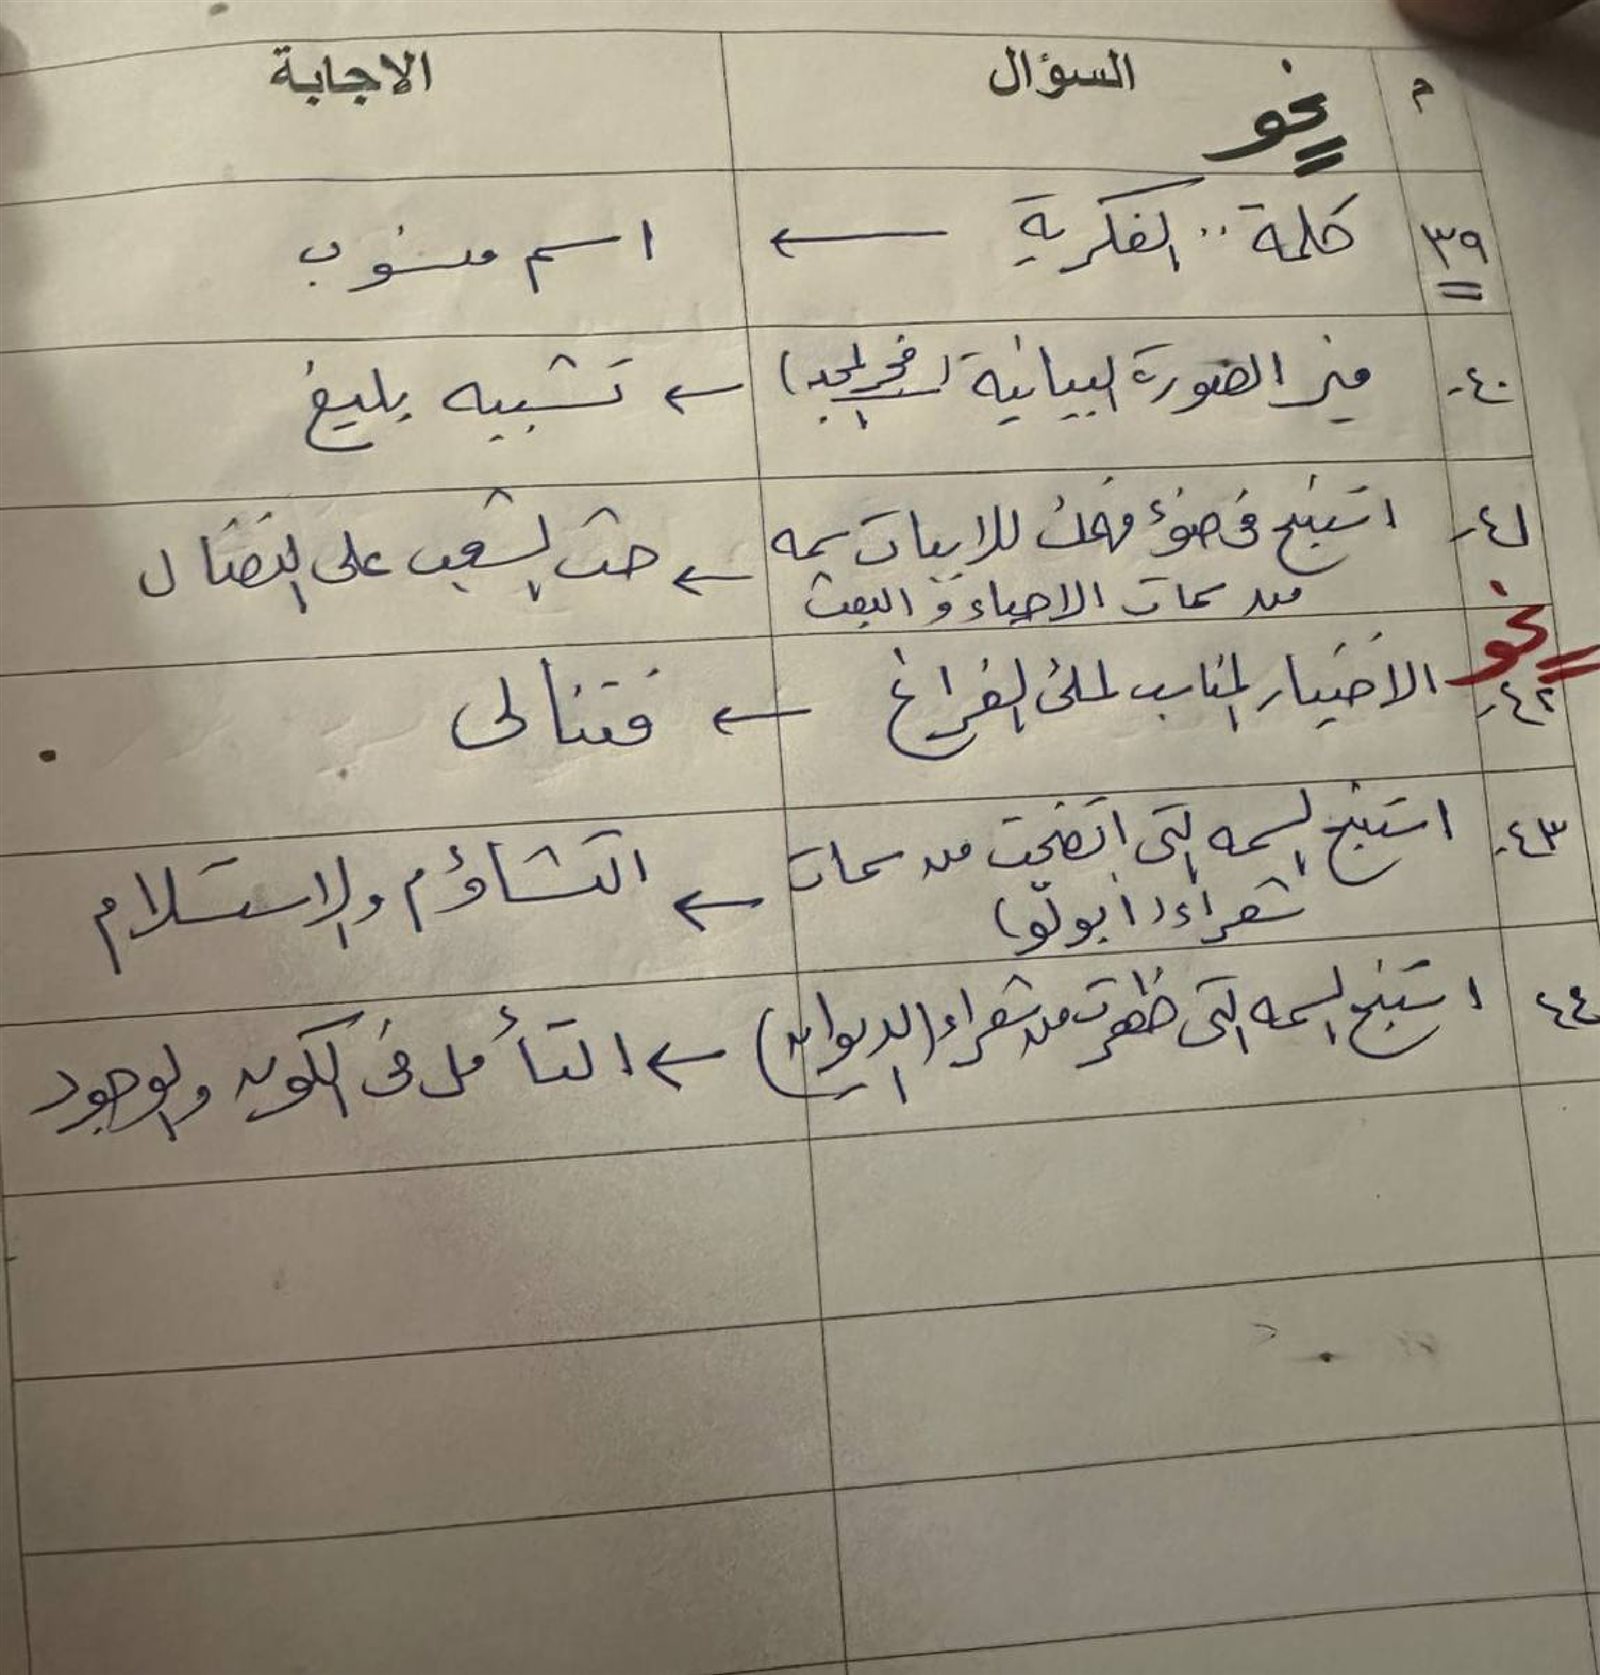 م السؤال الاجابة
نحو
٣٩ كلمة " الفكرية ← اسم منسوب
٤٠- ميز الصورة البيانية (فجر المجد) ← تشبيه بليغ
٤١- استنتج فى ضوء فهمك للابيات سمه ← حث الشعب على النضال
من سمات الاحياء و البعث
نحو
٤٢- الاختيار المناسب لملئ الفراغ ← فتنالى
٤٣- استنتج السمه التى اتضحت من سمات ← التشاؤم والاستسلام
شعراء (أبولّو)
٤٤ استنتج السمه التى ظهرت من شعراء (الديوان) ← التأمل فى الكون والوجود